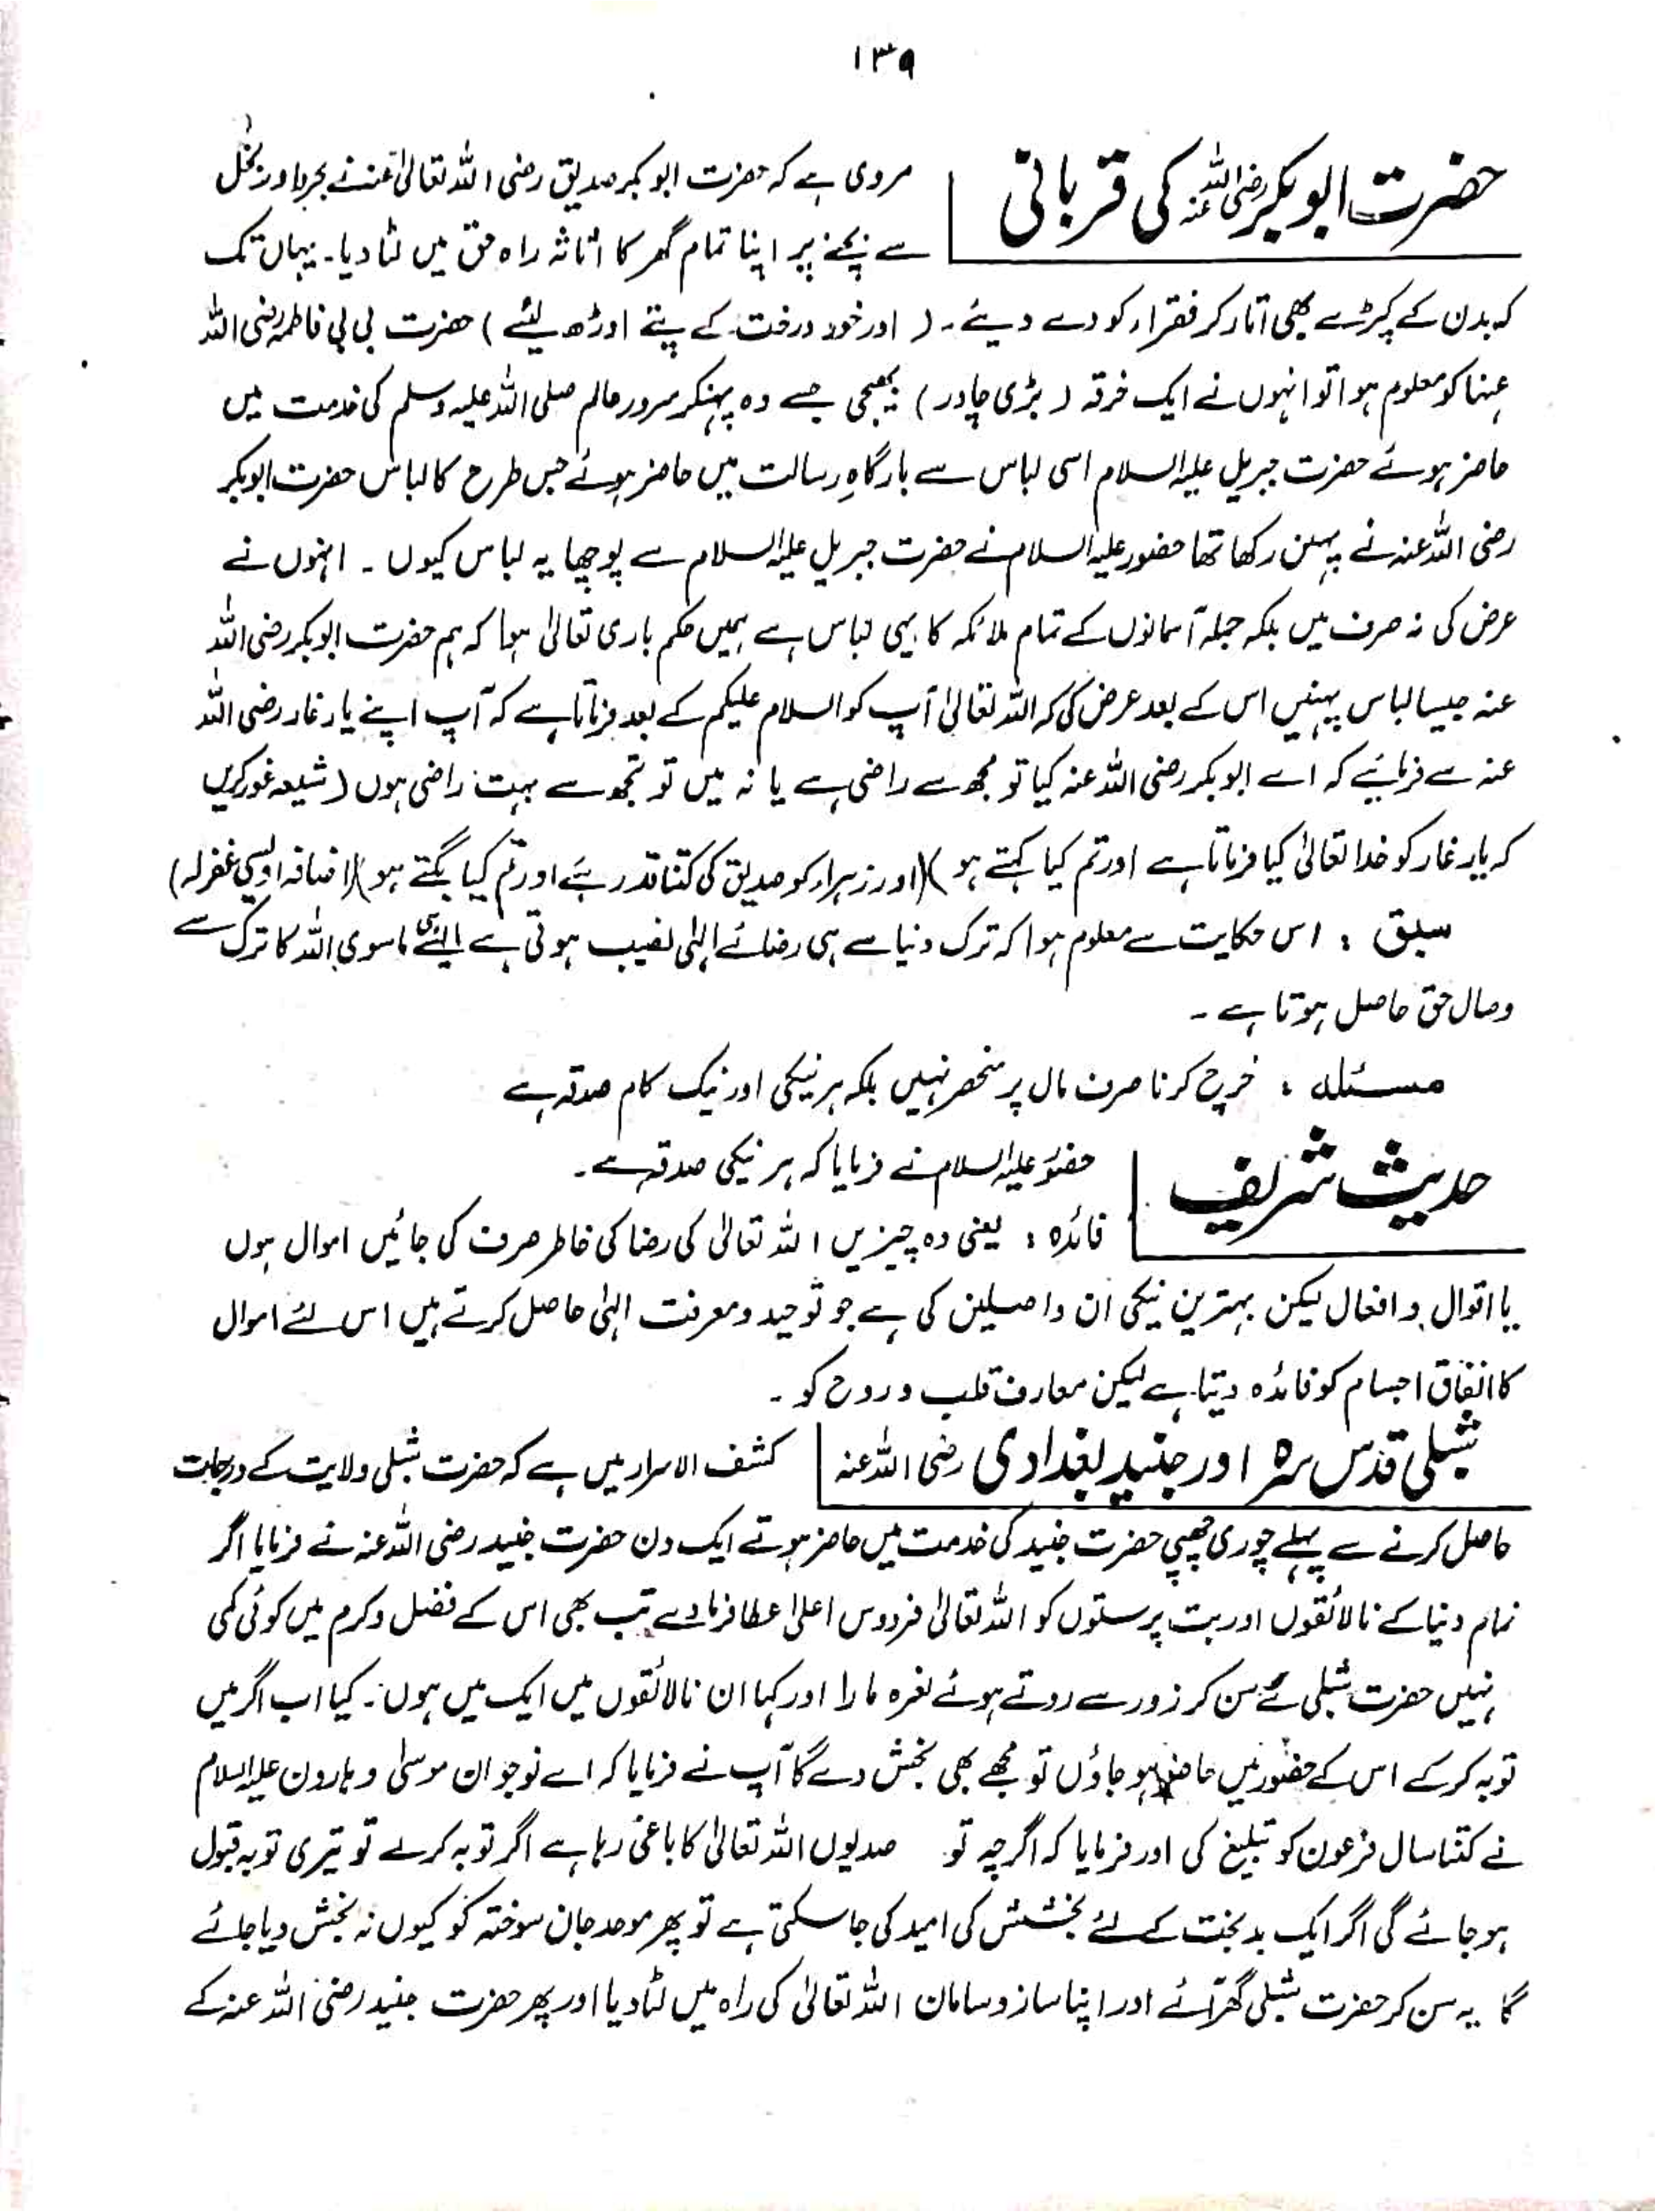 ۱۳۹
حضرت ابوبکر رضی اللہ عنہ کی قربانی
مروی ہے کہ حضرت ابو بکر صدیق رضی اللہ تعالیٰ عنہ نے بحر جود و بخل
سے بچنے پر اپنا تمام گھر کا اثاثہ راہ حق میں لٹا دیا۔ یہاں تک
کہ بدن کے کپڑے بھی اتار کر فقراء کو دے دیئے۔ ( اور خود درخت کے پتے اوڑھ لیئے ) حضرت بی بی فاطمہ رضی اللہ
عنہا کو معلوم ہوا تو انہوں نے ایک خرقہ ( بڑی چادر ) بھیجی جسے وہ پہنکر سرور عالم صلی اللہ علیہ وسلم کی خدمت میں
حاضر ہوئے حضرت جبریل علیہ السلام اسی لباس سے بارگاہِ رسالت میں حاضر ہوئے جس طرح کا لباس حضرت ابوبکر
رضی اللہ عنہ نے پہن رکھا تھا حضور علیہ السلام نے حضرت جبریل علیہ السلام سے پوچھا یہ لباس کیوں ۔ انہوں نے
عرض کی نہ صرف میں بلکہ جملہ آسمانوں کے تمام ملائکہ کا یہی لباس ہے ہمیں حکم باری تعالیٰ ہوا کہ ہم حضرت ابوبکر رضی اللہ
عنہ جیسا لباس پہنیں اس کے بعد عرض کی کہ اللہ تعالیٰ آپ کو السلام علیکم کے بعد فرماتا ہے کہ آپ اپنے یار غار رضی اللہ
عنہ سے فرمائیے کہ اے ابوبکر رضی اللہ عنہ کیا تو مجھ سے راضی ہے یا نہ میں تو تجھ سے بہت راضی ہوں ( شیعہ غور کریں
کہ یار غار کو خدا تعالیٰ کیا فرماتا ہے اور تم کیا کہتے ہو )( اور زہراء کو صدیق کی کتنا قدر ہے اور تم کیا بکتے ہو )( اضافہ اویسی غفرلہ)
سبق : اس حکایت سے معلوم ہوا کہ ترک دنیا سے ہی رضائے الٰہی نصیب ہوتی ہے ایسے ہی ماسوی اللہ کا ترک سے
وصال حق حاصل ہوتا ہے ۔
مسئلہ : خرچ کرنا صرف مال پر منحصر نہیں بلکہ ہر نیکی اور نیک کام صدقہ ہے
حدیث شریف
حضور علیہ السلام نے فرمایا کہ ہر نیکی صدقہ ہے ۔
فائدہ : یعنی وہ چیزیں اللہ تعالیٰ کی رضا کی خاطر صرف کی جائیں اموال ہوں
یا اقوال و افعال لیکن بہترین نیکی ان واصلین کی ہے جو توحید و معرفت الٰہی حاصل کرتے ہیں اس لئے اموال
کا انفاق اجسام کو فائدہ دیتا ہے لیکن معارف قلب و روح کو ۔
شبلی قدس سرہ اور جنید بغدادی رضی اللہ عنہ
کشف الاسرار میں ہے کہ حضرت شبلی ولایت کے درجات
حاصل کرنے سے پہلے چوری چھپی حضرت جنید کی خدمت میں حاضر ہوتے ایک دن حضرت جنید رضی اللہ عنہ نے فرمایا اگر
تمام دنیا کے نالائقوں اور بت پرستوں کو اللہ تعالیٰ فردوس اعلیٰ عطا فرمادے تب بھی اس کے فضل و کرم میں کوئی کمی
نہیں حضرت شبلی نے سن کر زور سے روتے ہوئے نعرہ مارا اور کہا ان نالائقوں میں ایک میں ہوں ۔ کیا اب اگر میں
توبہ کر کے اس کے حضور میں حاضر ہو جاؤں تو مجھے بھی بخش دے گا آپ نے فرمایا کہ اے نوجوان موسیٰ و ہارون علیہ السلام
نے کتنا سال فرعون کو تبلیغ کی اور فرمایا کہ اگرچہ تو صدیوں اللہ تعالیٰ کا باغی رہا ہے اگر توبہ کرلے تو تیری توبہ قبول
ہو جائے گی اگر ایک بدبخت کے لئے بخشش کی امید کی جاسکتی ہے تو پھر موحد جان سوختہ کو کیوں نہ بخش دیا جائے
گا یہ سن کر حضرت شبلی گھر آئے اور اپنا ساز و سامان اللہ تعالیٰ کی راہ میں لٹا دیا اور پھر حضرت جنید رضی اللہ عنہ کے